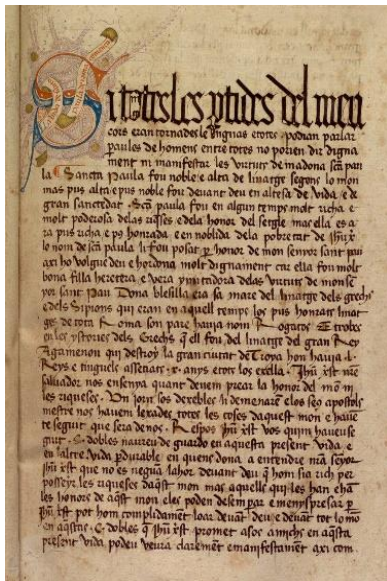 Si totes les ptides del meu
cors eran tornades lenguas e totes podian parlar
paraules de homens entre totes no porien dir digna
ment ni manifestar les virtuts de madona scā pau
la Sancta Paula fou noble e alta de linatge segons lo mon
mas pus alta e pus noble fou deuant deu en altesa de vida e de
gran sanctedat. Scā paula fou en algun temps molt richa e
molt poderosa de las riqses e de la honor del setgle mas ella es a
ra pus richa e ps honrada e en noblida de la pobretat de Jhu xp̄t
lo nom de scā paula li fou posat p honor de mon senyor sant pau
axi ho volgue deu e hordona molt dignament car ella fou molt
bona filla heretera e vera ymitadora de las virtuts de monse
yor sant Pau Dona blesilla era sa mare del linatge dels grechs
e dels Sipions qui eran en aquell temps los pus honrats linat
ges de tota Roma son pare hauia nom Rogatus E trobas
en les ystories dels Grechs q ell fou del linatge del gran Rey
Agamenon qui destrohi la gran ciutat de Troya hon hauia .l.
Reys e tingueles assetiats .x. anys etots los exella. Jhu xp̄t nrē
saluador nos ensenya quant deuem prear la honor del mō ni
les riqueses. Un jorn sos dexebles li demenarē e los seus apostols
mestre nos hauem lexades totes les coses daquest mon e hauē
te seguit que sera de nos. Respos Jhu xp̄t vos quim haueu se
guit. C. dobles naureu de guardo en aquesta present vida e
en laltre vida pdurable en quens dona a entendre nrā seyor
Jhu xp̄t que no es negua lahor deuant deu q hom sia rich per
posseyr les riqueses daqst mon mas aquells qui les han e hā
les honors de aqst mon e les poden desemparar e menyspresar p
Jhu xp̄t pot hom complidament loar deuant deu e deuāt tot lo mō
en aqstas. C. dobles q Jhu xp̄t promet a sos amichs en aqsta
present vida podeu veura clarement e manifestament axi com